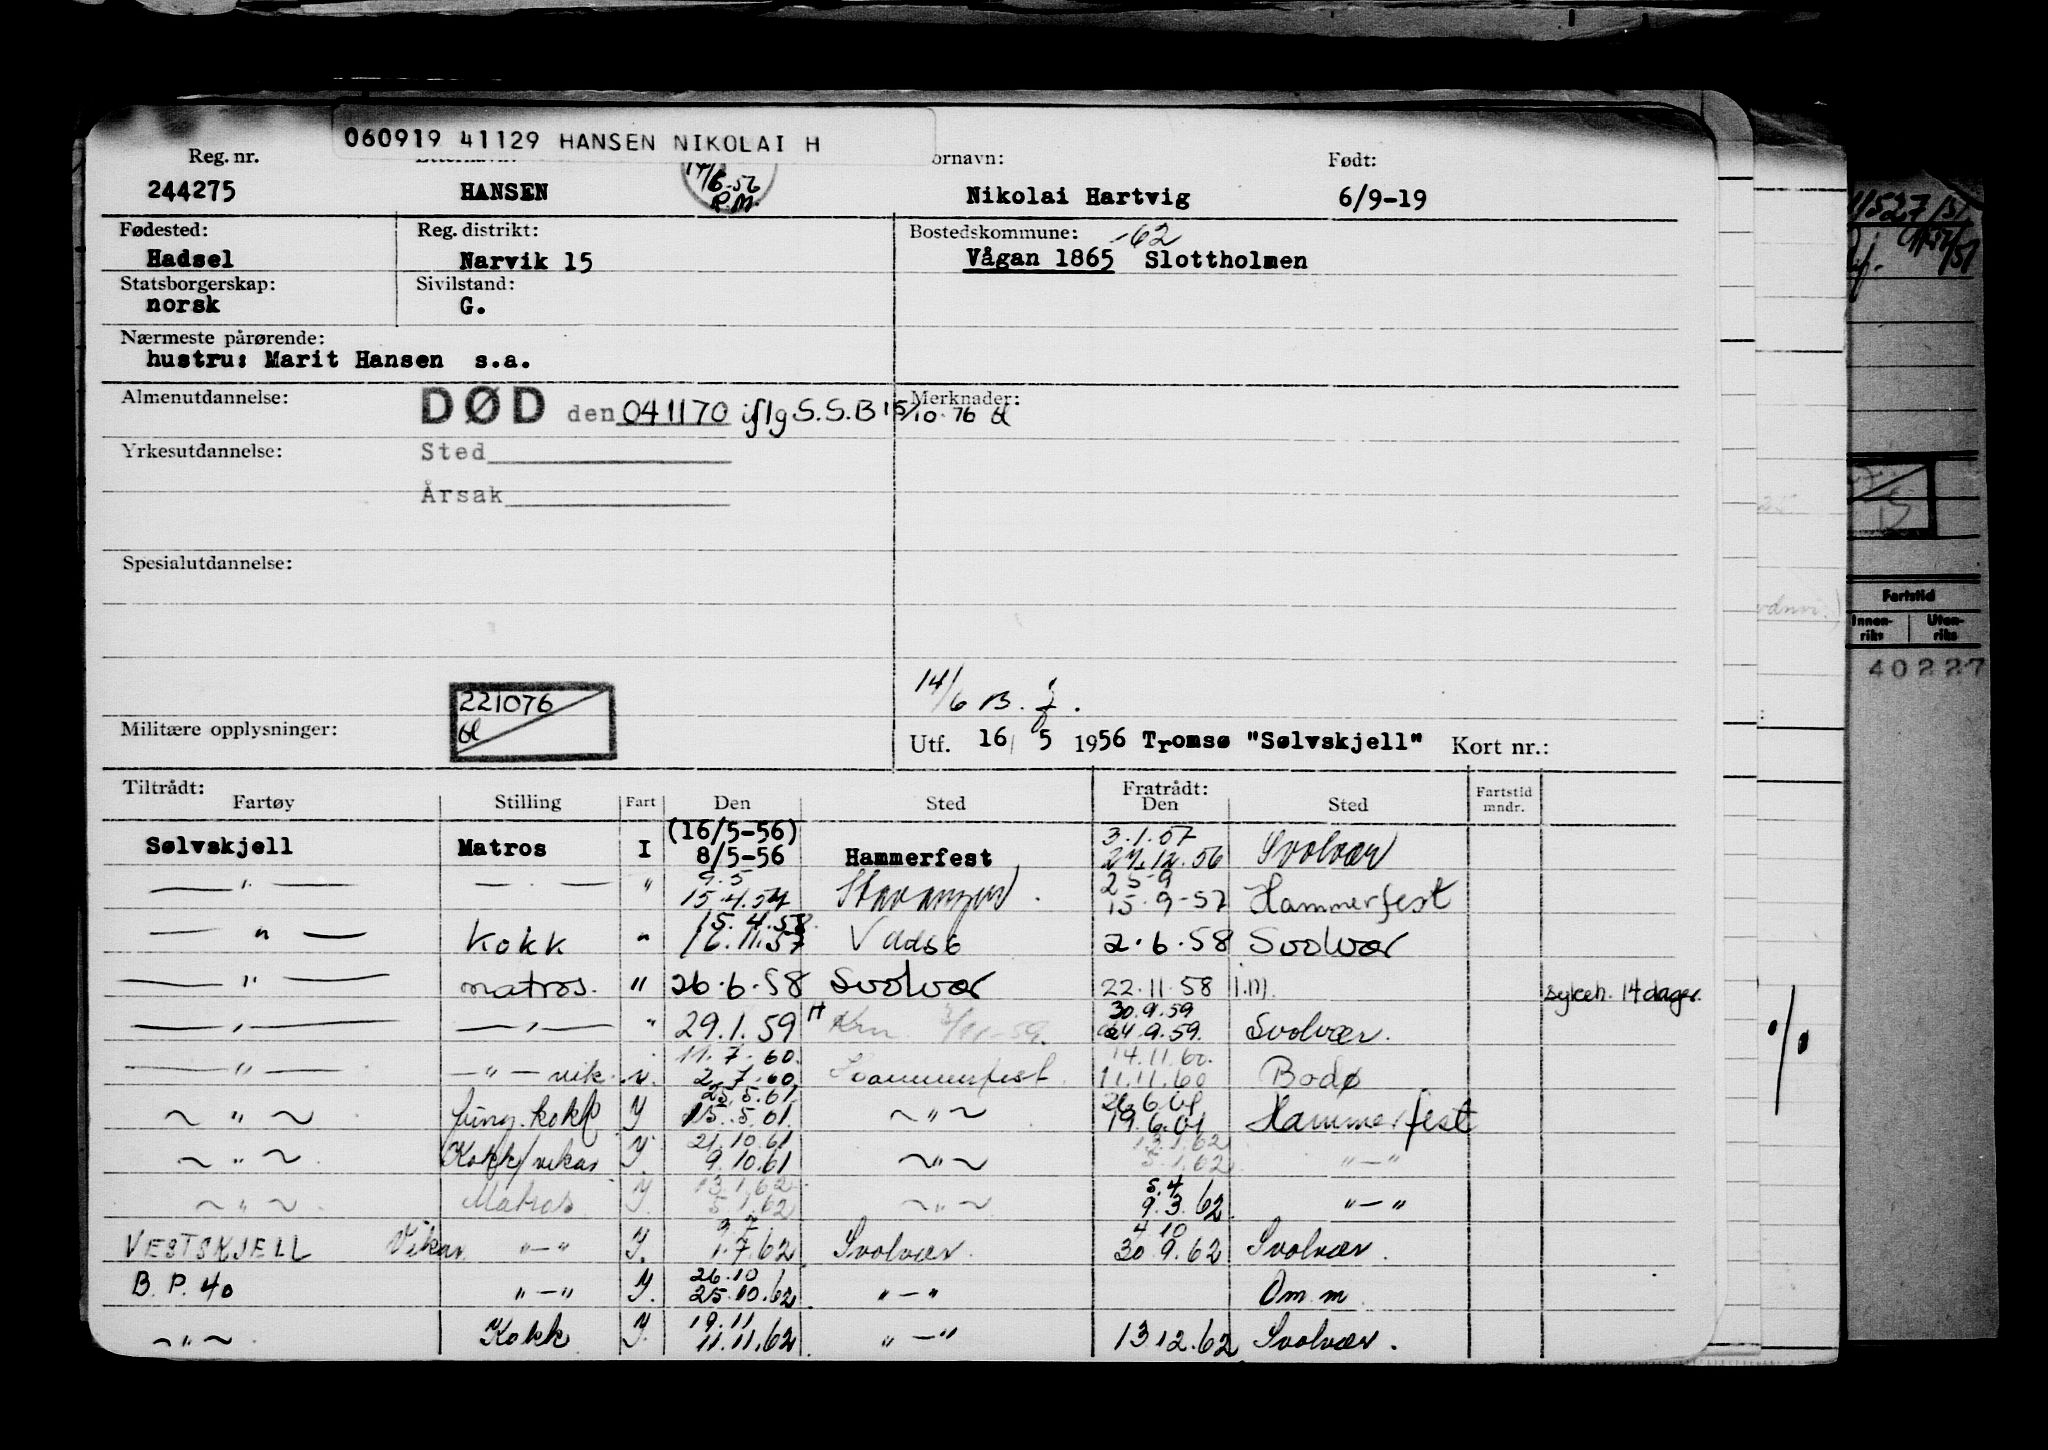 060919 41129 HANSEN NIKOLAI H
Reg. nr. ornavn: Født:
244275 HANSEN 14/6-56 P.M. Nikolai Hartvig 6/9-19
Fødested: Reg. distrikt: Bostedskommune: -62
Hadsel Narvik 15 Vågan 1865 Slottholmen
Statsborgerskap: Sivilstand:
norsk G.
Nærmeste pårørende:
hustru: Marit Hansen s.a.
Almenutdannelse: DØD den 041170 iflg S.S.B 15/10-76 Merknader:
Yrkesutdannelse: Sted
Årsak
Spesialutdannelse:
221076
14/6 B.
Militære opplysninger: Utf. 16/5 1956 Tromsø "Sølvskjell" Kort nr.:
Tiltrådt: Fratrådt:
Fartøy Stilling Fart Den Sted Den Sted Fartstid mndr.
(16/5-56) 3.1.57
Sølvskjell Matros I 8/5-56 Hammerfest 27.12.56 Svolvær
9.5 25-9
—"— —.— " 15.4.57 Stavanger. 15.9-57 Hammerfest
15.4.58
—"— Kokk " 16.11.57 Vadsø 2.6.58 Svolvær
—"— matros. " 26.6.58 Svolvær 22.11.58 i.m. sykeh. 14 dager.
30.9.59
—"— —"— " 29.1.59 24.9.59. Svolvær.
11.7.60. 14.11.60.
—"— —"— vik. " 2.7.60 Hammerfest. 11.11.60 Bodø
25.5.61 26.6.61
~"~ fung. kokk Y 15.5.61. ~"~ 19.6.61 Hammerfest
21.10.61 13.1.62
~"~ Kokk/vikar Y. 9.10.61 ~"~ 5.1.62 "—"
13.1.62 5.4
~"~ Matros Y. 5.1.62 ~"~ 9.3.62. "—"
9.7 4.10
VESTSKJELL Vikar "—" Y. 1.7.62 Svolvær. 30.9.62 Svolvær.
26.10
B.P. 40 "—" Y. 25.10.62 "—" Om m.
19.11
~"~ Kokk Y. 11.11.62 "—" 13.12.62 Svolvær.
Fartstid
Innen-riks Uten-riks
40227